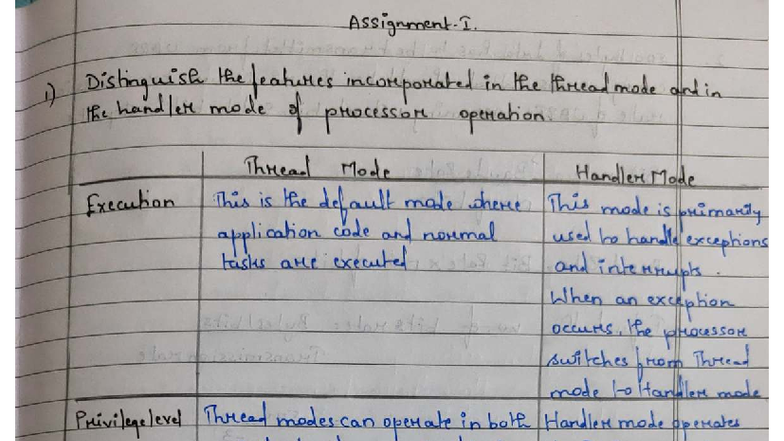 Assignment-I.
1) Distinguish the features incorporated in the thread mode and in
the handler mode of processor operation
Thread Mode
Handler Mode
Execution
This is the default mode where
application code and normal
tasks are executed
This mode is primarily
used to handle exceptions
and interrupts.
When an exception
occurs, the processor
switches from Thread
mode to Handler mode
Privilege level
Thread modes can operate in both
Handler mode operates